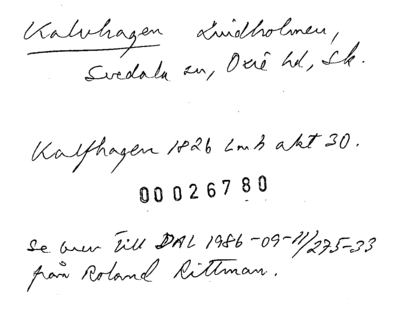 Kalvhagen Lindholmen,
Svedala sn, Oxie hd, Sk.
Kalfhagen 1826 Lmh akt 30.
00026780
Se brev till DAL 1986-09-11/275-33
från Roland Rittman.